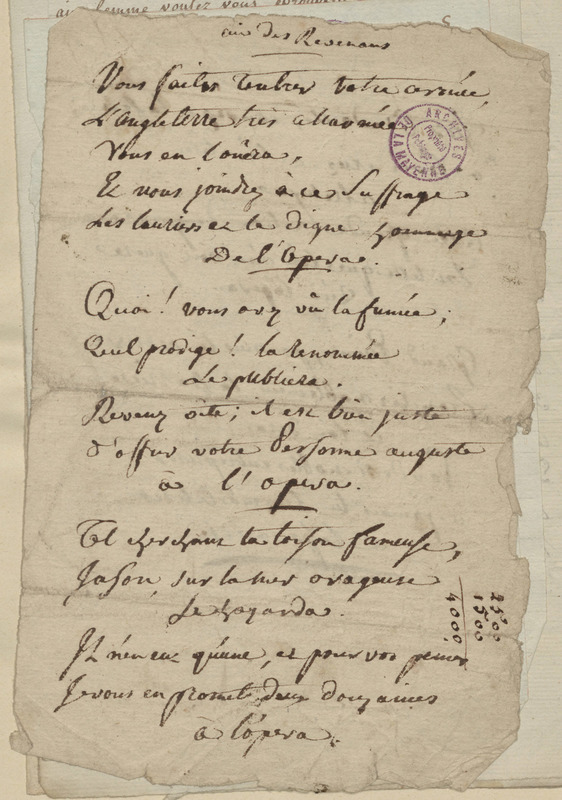 aux femme voulez vous éprouver
air des Revenans
Vous faites rentrer votre armée,
L'angleterre très allarmée
Vous en loûera,
Et vous joindrez à ce Suffrage
Les lauriers et le digne hommage
De l'Opera.
Quoi! vous avez vû la fumée,
Quel prodige! la renommée
Le publiera.
Revenez vite; il est bien juste
d'offrir votre Personne auguste
à l'opera.
Tel cherchant la toison fameuse,
Jason, sur la mer orageuse
Se hazarda.
Il n'en eut qu'une, et pour vos peines
Je vous en promets deux douzaines
à l'opera.
2500
1500
4000
ARCHIVES
DE LA MAYENNE